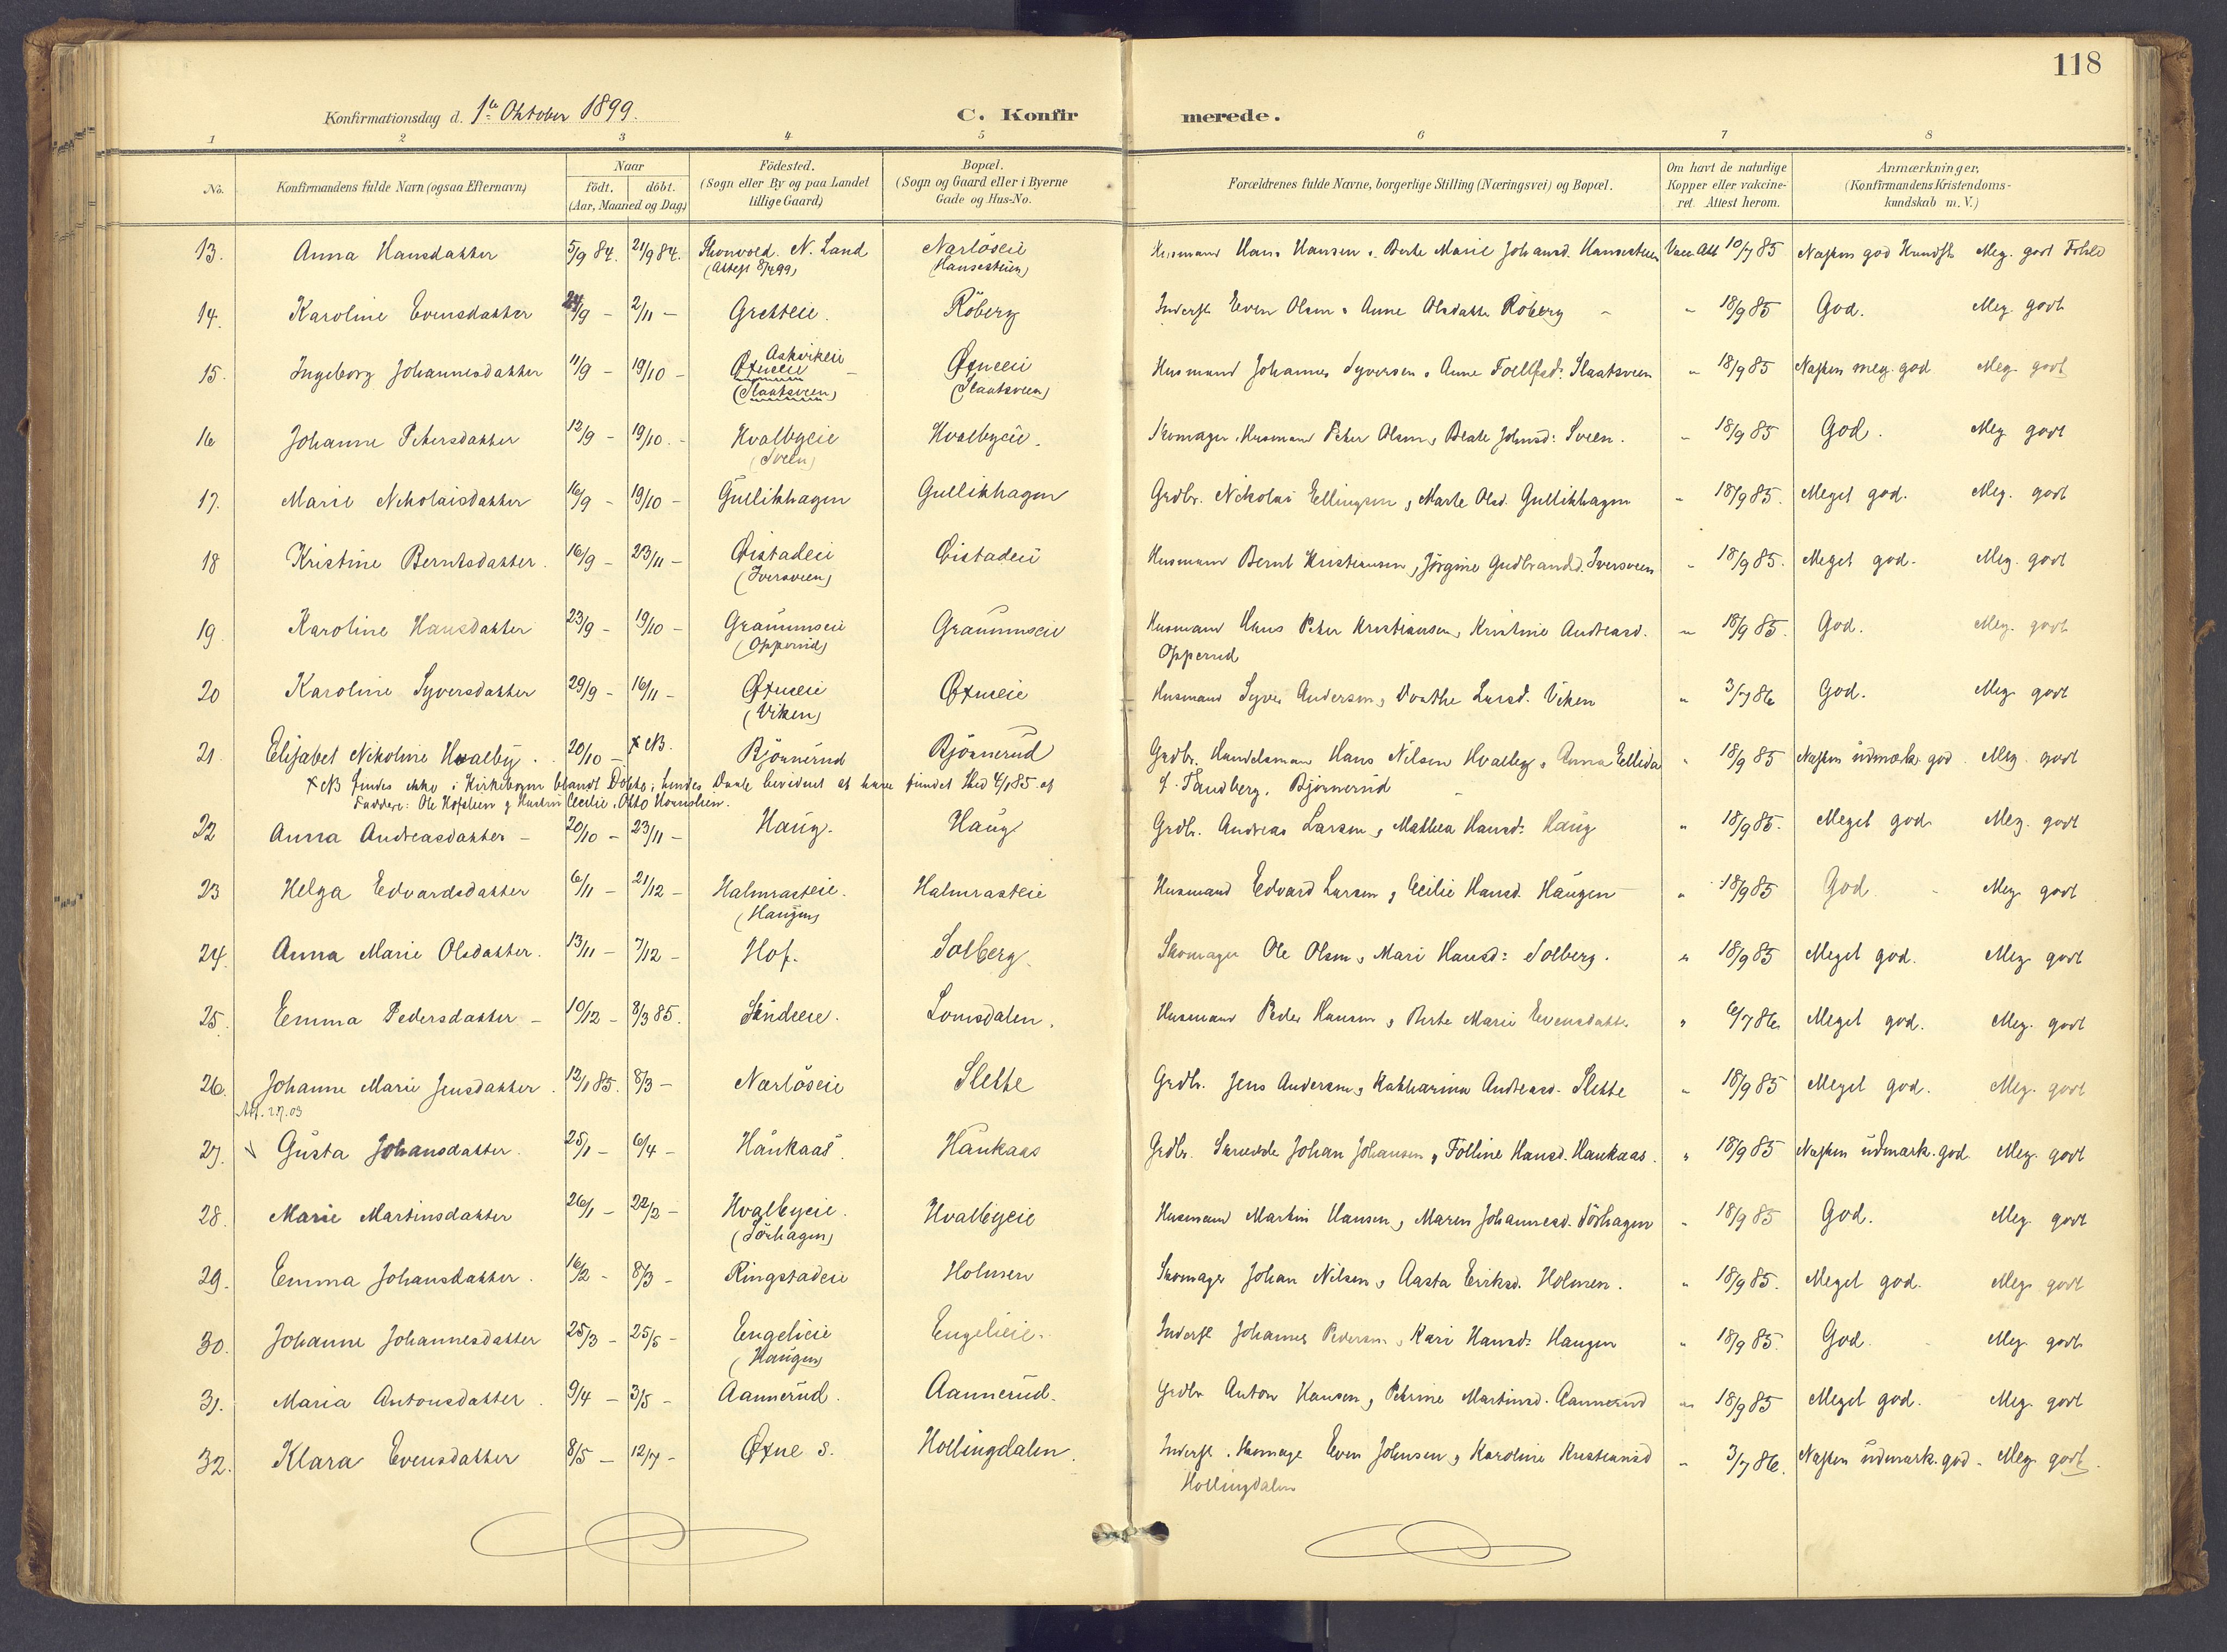 118
Konfirmationsdag d. 1ste Oktober 1899.
C. Konfirmerede.
1 2 3 4 5 6 7 8
No.
Konfirmandens fulde Navn (ogsaa Efternavn)
Naar
födt. döbt.
(Aar, Maaned og Dag)
Födested.
(Sogn eller By og paa Landet
tillige Gaard)
Bopæl.
(Sogn og Gaard eller i Byerne
Gade og Hus-No.
Forældrenes fulde Navne, borgerlige Stilling (Næringsvei) og Bopæl.
Om havt de naturlige
Kopper eller vakcine-
ret. Attest herom.
Anmærkninger,
(Konfirmandens Kristendoms-
kundskab m. V.)
13. Anna Hansdatter 5/9 84. 21/9 84. Skonvold. N. Land Narlöseie Husmand Hans Hansen, Berte Marie Johansd. Hansesteen Vacc Att 10/7 85 Næsten god Kundsk Meg. godt Forhld
(Attest 8/4 99) (Hansesteien)
14. Karoline Evensdatter 24/9 - 2/11 - Gretteie. Röberg Inderst Even Olsen, Anne Olsdatter Röberg " 18/9 85 God. Meg. godt
15. Ingeborg Johannesdatter 11/9 - 19/10 - Øxneeie Askvikeie Øxneeie Husmand Johannes Syversen, Anne Toellfsd: Slaatsveen " 18/9 85 Næsten meg. god Meg. godt
(Slaatsveen) (Slaatsveen)
16 Johanne Petersdatter 12/9 - 19/10. - Hvalbyeie Hvalbyeie. Skomager, Husmand Peter Olsen, Beate Johnsd: Sveen. " 18/9 85 God. Meg godt
(Sveen)
17. Marie Nikolaisdatter 16/9 - 19/10 - Gullikhagen Gullikhagen Grdbr. Nikolai Ellingsen, Marte Olsd. Gullikhagen " 18/9 85. Meget god. Meg. godt
18 Kristine Berntsdatter. 16/9 - 23/11 - Øistadeie Øistadeie Husmand Bernt Kristiansen, Jörgine Gudbrandsd. Iversveen " 18/9 85. Meget god. Meg. godt
(Iversveen)
19 Karoline Hansdatter 23/9 - 19/10 - Graumnseie Graumnseie Husmand Hans Peter Kristiansen, Kristine Andreasd. " 18/9 85. God. Meg. godt
(Opperud) Opperud
20 Karoline Syversdatter 29/9 - 16/11 - Øxneeie Øxneeie Husmand Syver Andersen, Dorthe Larsd. Viken " 3/7 86 God. Meg. godt
(Viken)
21. Elisabet Nikoline Hvalby. 20/10 - x NB. Björnerud Björnerud Grdbr. Handelsmand Hans Nilsen Hvalby, Anna Ellida " 18/9 85 Næsten udmærk. god. Meg. godt
x NB findes ikke i Kirkebogen blandt Döbte; hendes Daab bevidnet at have fundet Sted 4/1 85 af
f. Sandberg. Björnerud
Faddere: Ole Hofsleen og Hustru Cecilie, Otto Hornslien.
22 Anna Andreasdatter - 20/10 - 23/11 - Haug. Haug Grdbr. Andreas Larsen, Mathea Hansd: Haug " 18/9 85. Meget god Meg. godt
23 Helga Edvardsdatter 6/11 - 21/12 - Halmrasteie. Halmrasteie Husmand Edvard Larsen, Cecilie Hansd. Haugen " 18/9 85 God. Meg. godt
(Haugen)
24. Anna Marie Olsdatter. 13/11 - 7/12 - Hof. Solberg. Skomager Ole Olsen, Mari Hansd: Solberg. " 18/9 85 Meget god. Meg. godt
25. Emma Pedersdatter - 10/12 - 8/3 85. Sandeeie. Lomsdalen. Husmand Peder Hansen, Berte Marie Evensdatter " 6/7 86 Meget god. Meg. godt
26. Johanne Marie Jensdatter. 12/1 85. 8/3 - Nærlöseie Slette Grdbr. Jens Andersen, Katharina Andreasd. Slette " 18/9 85 Meget god. Meg. godt
27. Gusta Johansdatter. 25/1 - 6/4 - Haukaas. Haukaas Grdbr. Johan Johansen, Tolline Hansd. Haukaas. " 18/9 85 Næsten udmærk. god Meg. godt
28. Marie Martinsdatter 26/1 - 22/2 - Hvalbyeie. Hvalbyeie Husmand Martin Hansen, Maren Johannesd. Sörhagen " 18/9 85 God. Meg. godt
(Sörhagen)
29. Emma Johansdatter. 16/2 - 8/3 - Ringstadeie Holmen Skomager Johan Nilsen, Aasta Eriksd. Holmen. " 18/9 85. Meget god. Meg. godt
30. Johanne Johannesdatter 25/3 - 25/5 - Engelieie Engelieie. Inderst Johannes Pedersen, Kari Hansd: Haugen " 18/9 85. God. Meg. godt
(Haugen)
31. Maria Antonsdatter. 9/4 - 3/5 - Aannerud. Aannerud. Grdbr Anton Hansen, Petrine Martinsd. Aannerud " 18/9 85 Meget god. Meg. godt
32. Klara Evensdatter 8/5 - 12/7 - Øxne s. Hollingdalen. Inderst. Skomager Even Johnsen, Karoline Kristiansd " 3/7 86. Næsten udmærk. god. Meg. godt.
Hollingdalen